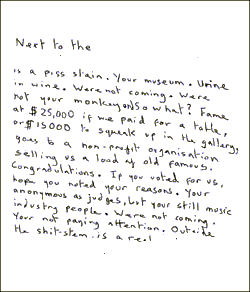 Next to the
is a piss stain. Your museum. Urine
in wine. Were not coming. Were
not your monkeys. So what? Fame
at $25,000 if we paid for a table,
or $15000 to squeak up in the gallery,
goes to a non-profit organisation
selling us a load of old famous.
Congradulations. If you voted for us,
hope you noted your reasons. Your
anonymous as judges, but your still music
industry people. Were not coming.
Your not paying attention. Outside
the shit-stem is a real